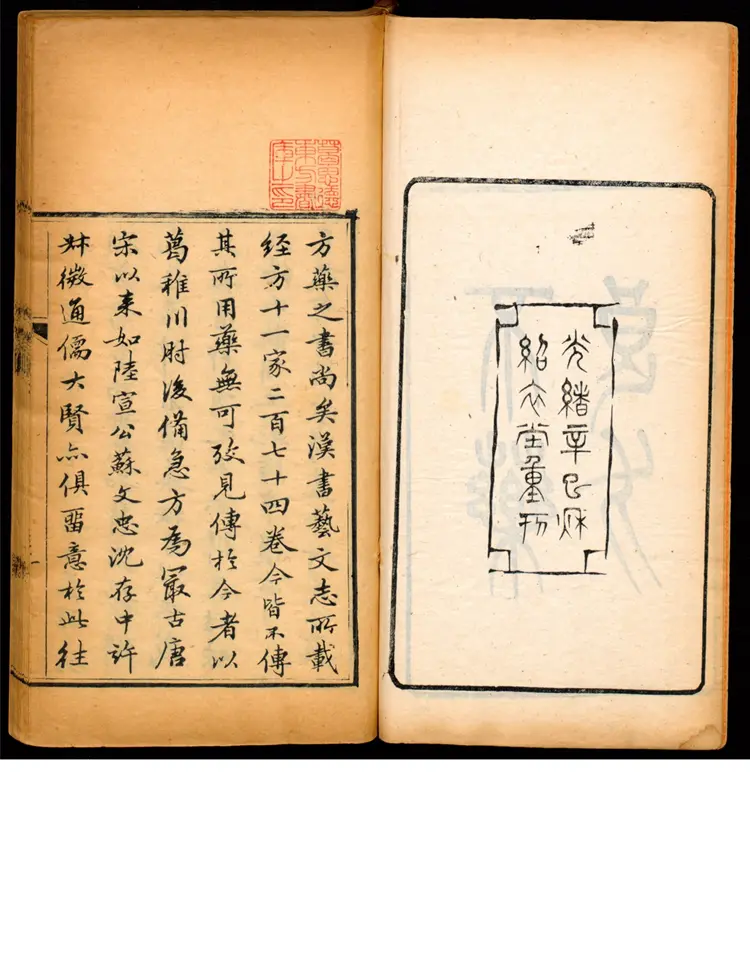 光緒辛巳秌
紹衣堂重刊
葛思德
東方書
庫之印
方藥之書尚矣漢書藝文志所載
經方十一家二百七十四卷今皆不傳
其所用藥無可攷見傳扵今者以
葛稚川肘後備急方為冣古唐
宋以來如陸宣公蘇文忠沈存中許
叔微通儒大賢亦俱畱意扵此往